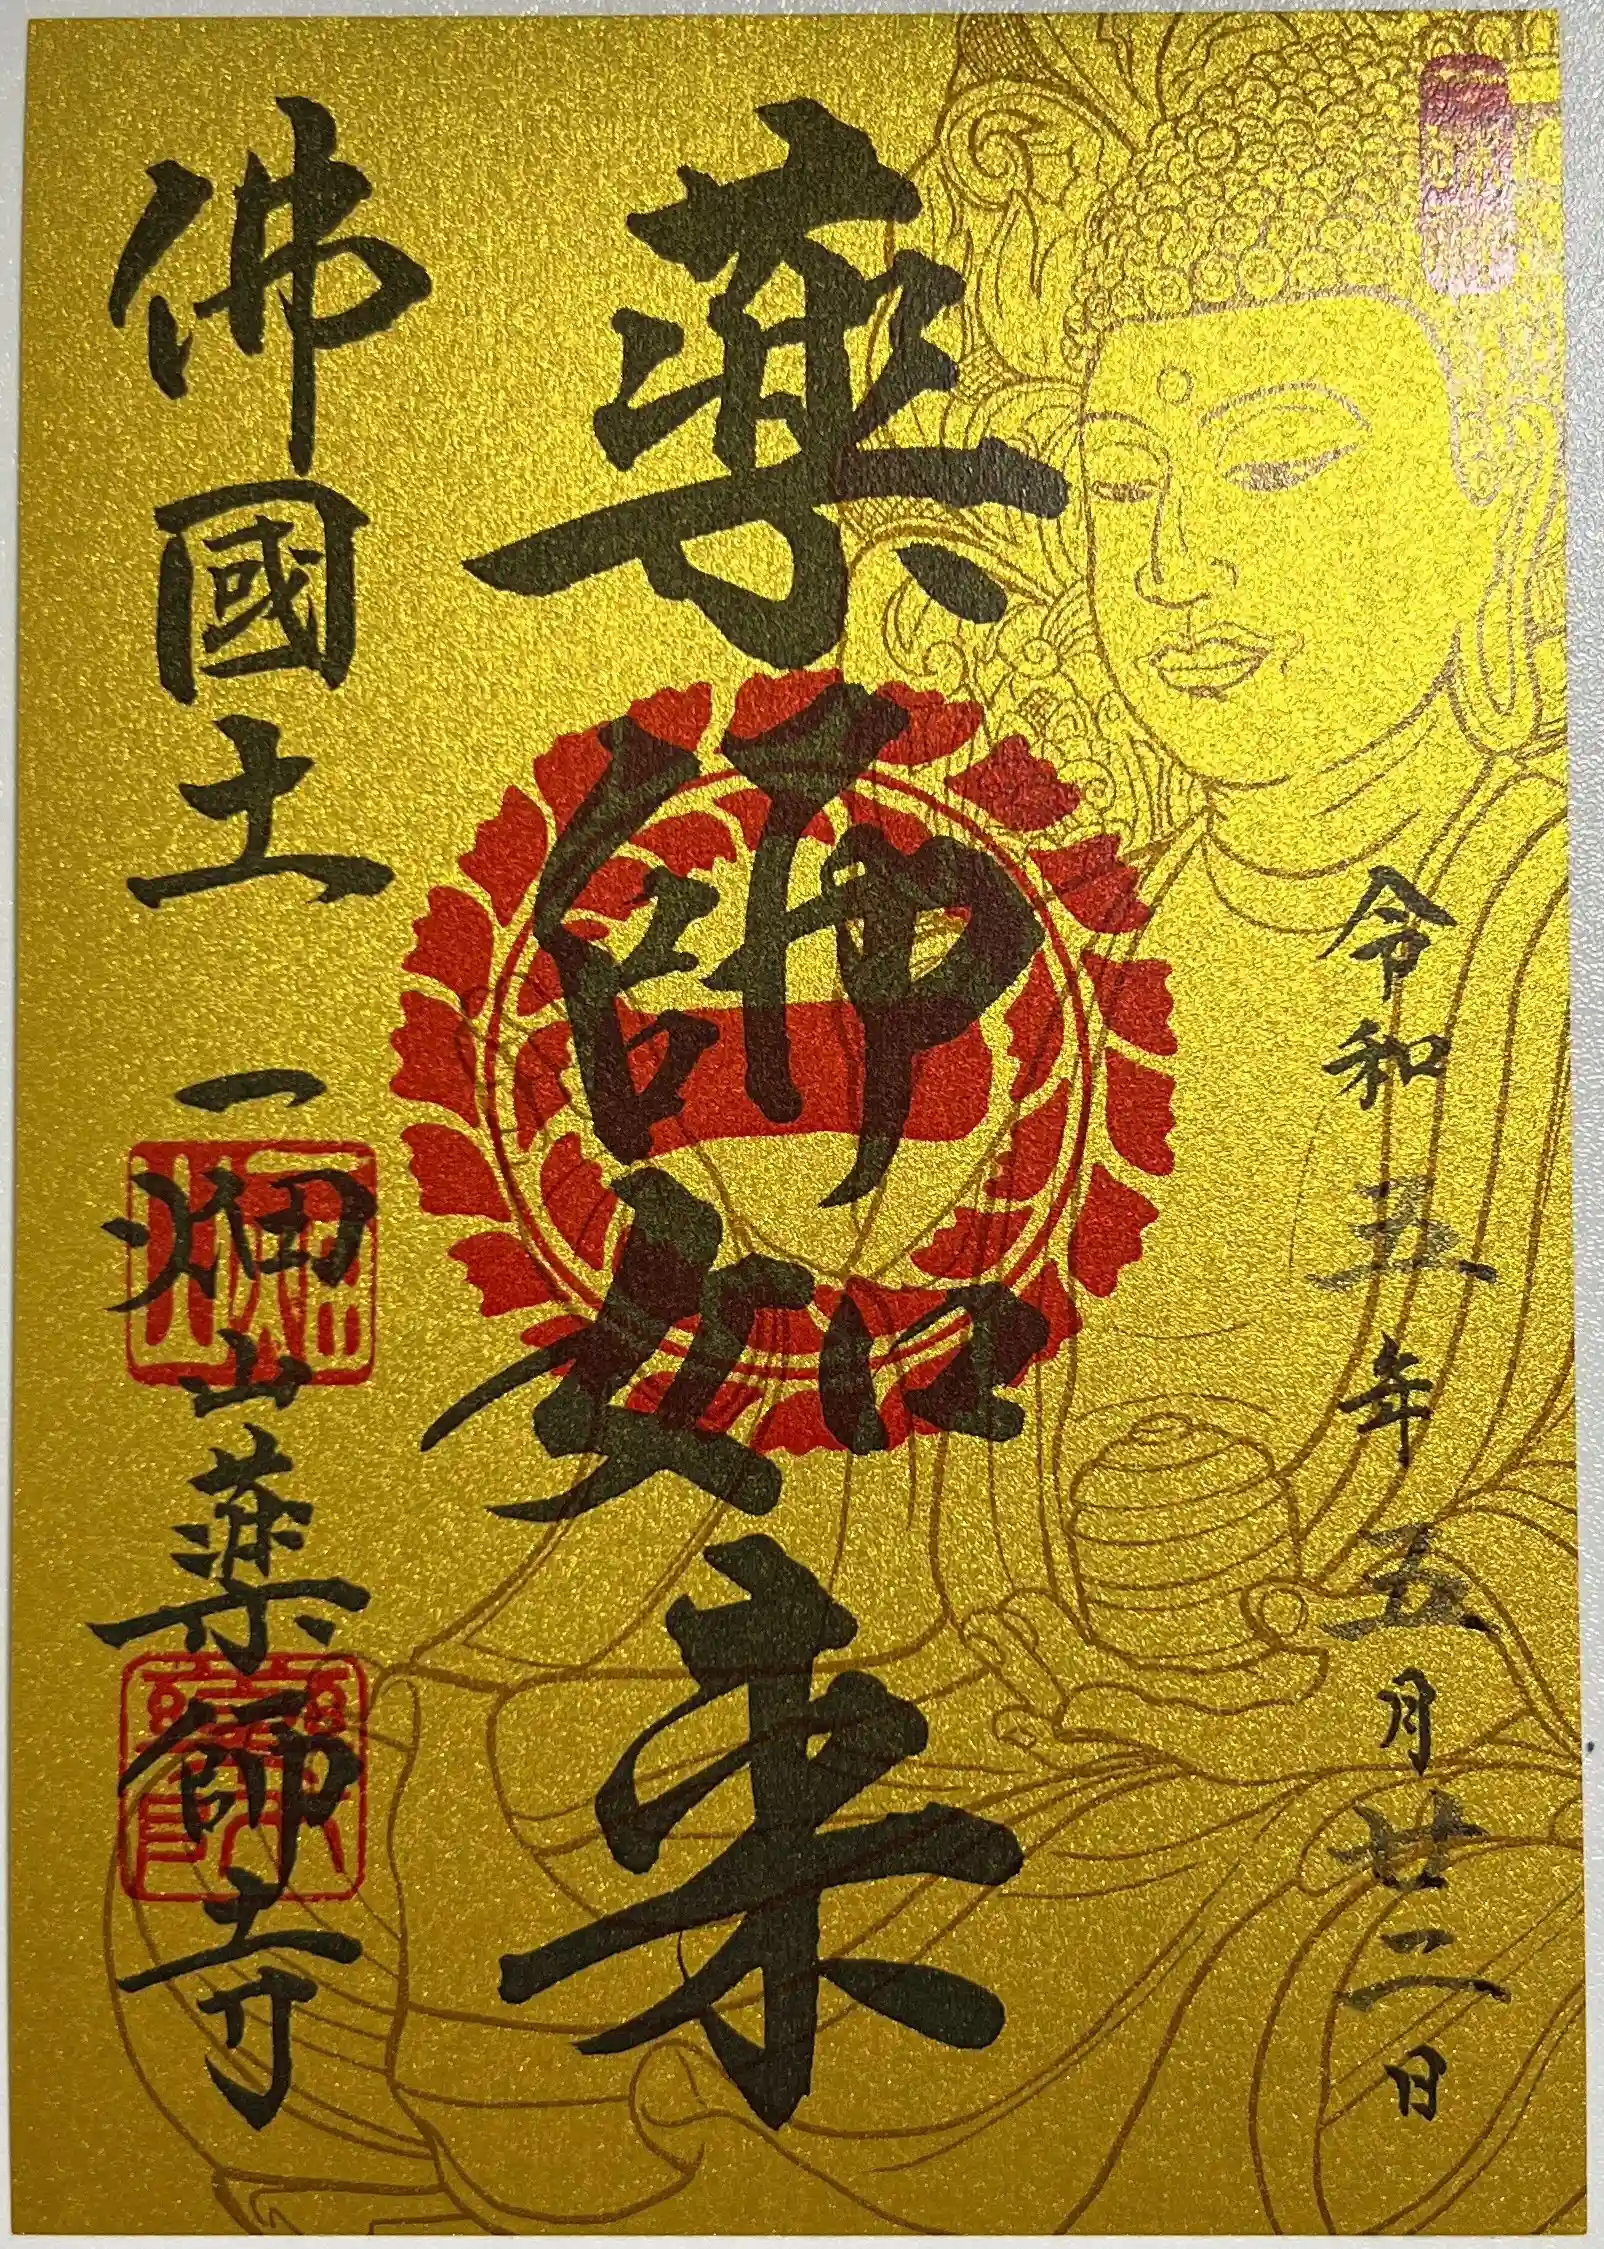 令和五年五月廿二日
薬師如来
佛國土 一畑山薬師寺